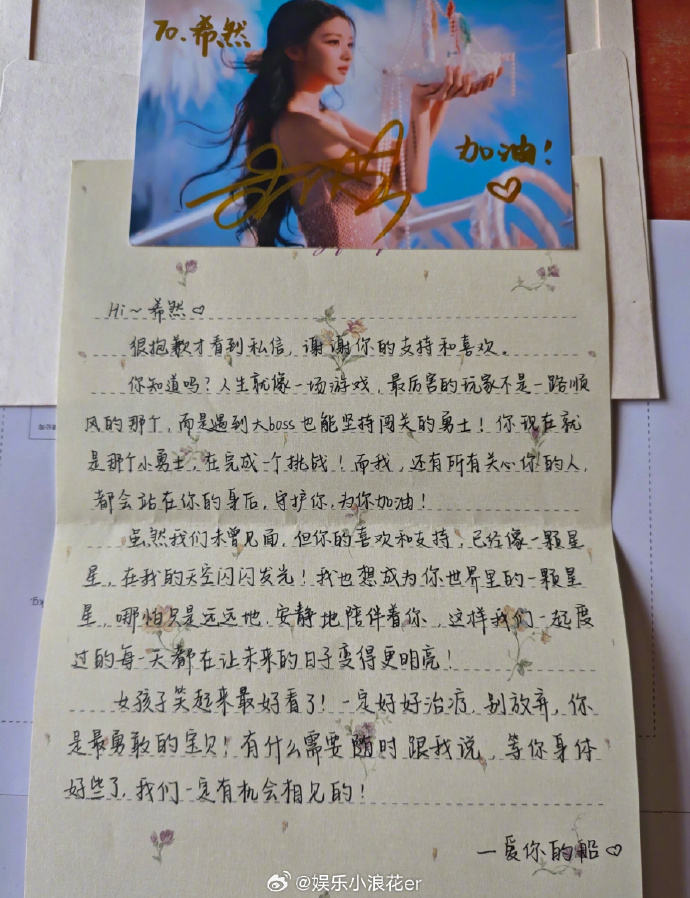 To.希然
加油!
Hi~希然♡
很抱歉才看到私信,谢谢你的支持和喜欢。
你知道吗?人生就像一场游戏,最厉害的玩家不是一路顺
风的那个,而是遇到大boss也能坚持闯关的勇士!你现在就
是那个小勇士,在完成一个挑战!而我,还有所有关心你的人,
都会站在你的身后,守护你,为你加油!
虽然我们未曾见面,但你的喜欢和支持,已经像一颗星
星,在我的天空闪闪发光!我也想成为你世界里的一颗星
星,哪怕只是远远地,安静地陪伴着你,这样我们一起度
过的每一天都在让未来的日子变得更明亮!
女孩子笑起来最好看了!一定好好治疗,别放弃,你
是最勇敢的宝贝!有什么需要随时跟我说,等你身体
好些了,我们一定有机会相见的!
—爱你的船♡
@娱乐小浪花er